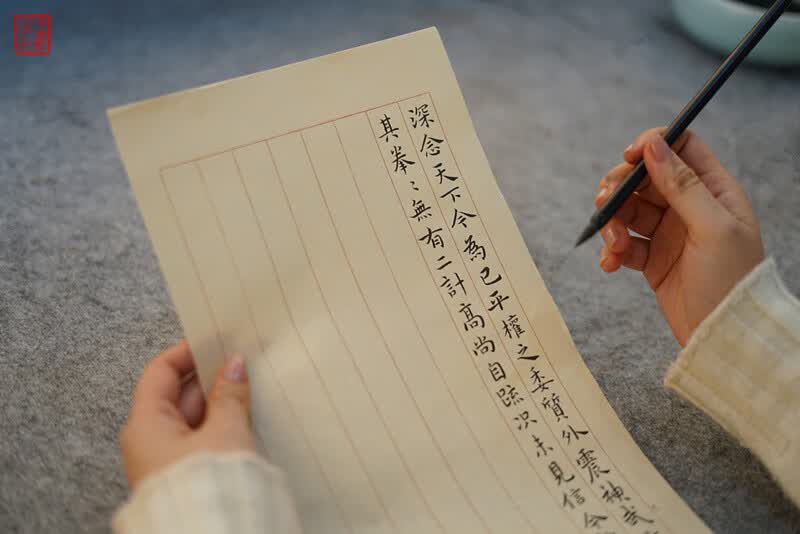 深念天下今為已平權之委質外震神武
其拳〻無有二計高尚自疏況未見信今